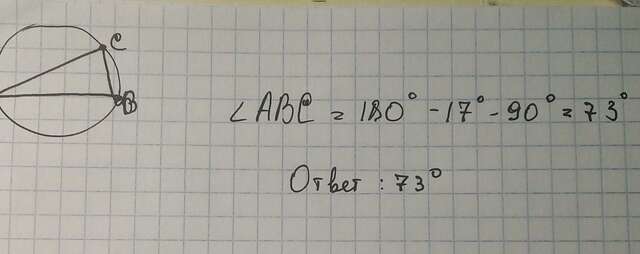 C
B
∠ABC = 180° - 17° - 90° = 73°
Ответ : 73°